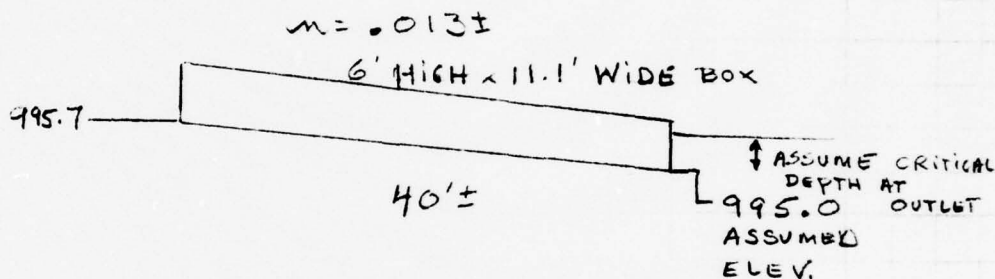 n = .013±
6' HIGH x 11.1' WIDE BOX
995.7
ASSUME CRITICAL
DEPTH AT
OUTLET
40'±
995.0
ASSUMED
ELEV.